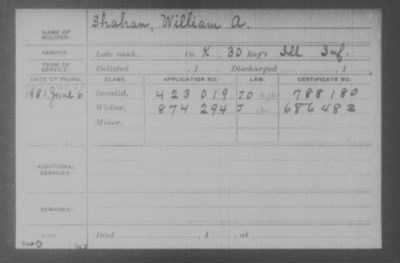 NAME OF SOLDIER: Shahan, William A.
SERVICE: Late rank, Co. K 30 Reg't Ill Inf.
TERM OF SERVICE: Enlisted , 1 Discharged , 1
DATE OF FILING. CLASS. APPLICATION NO. LAW. CERTIFICATE NO.
1881, June 6 Invalid, 423 019 788 180
Widow, 874 294 686 482
Minor,
ADDITIONAL SERVICES:
REMARKS:
Died , 1 , at